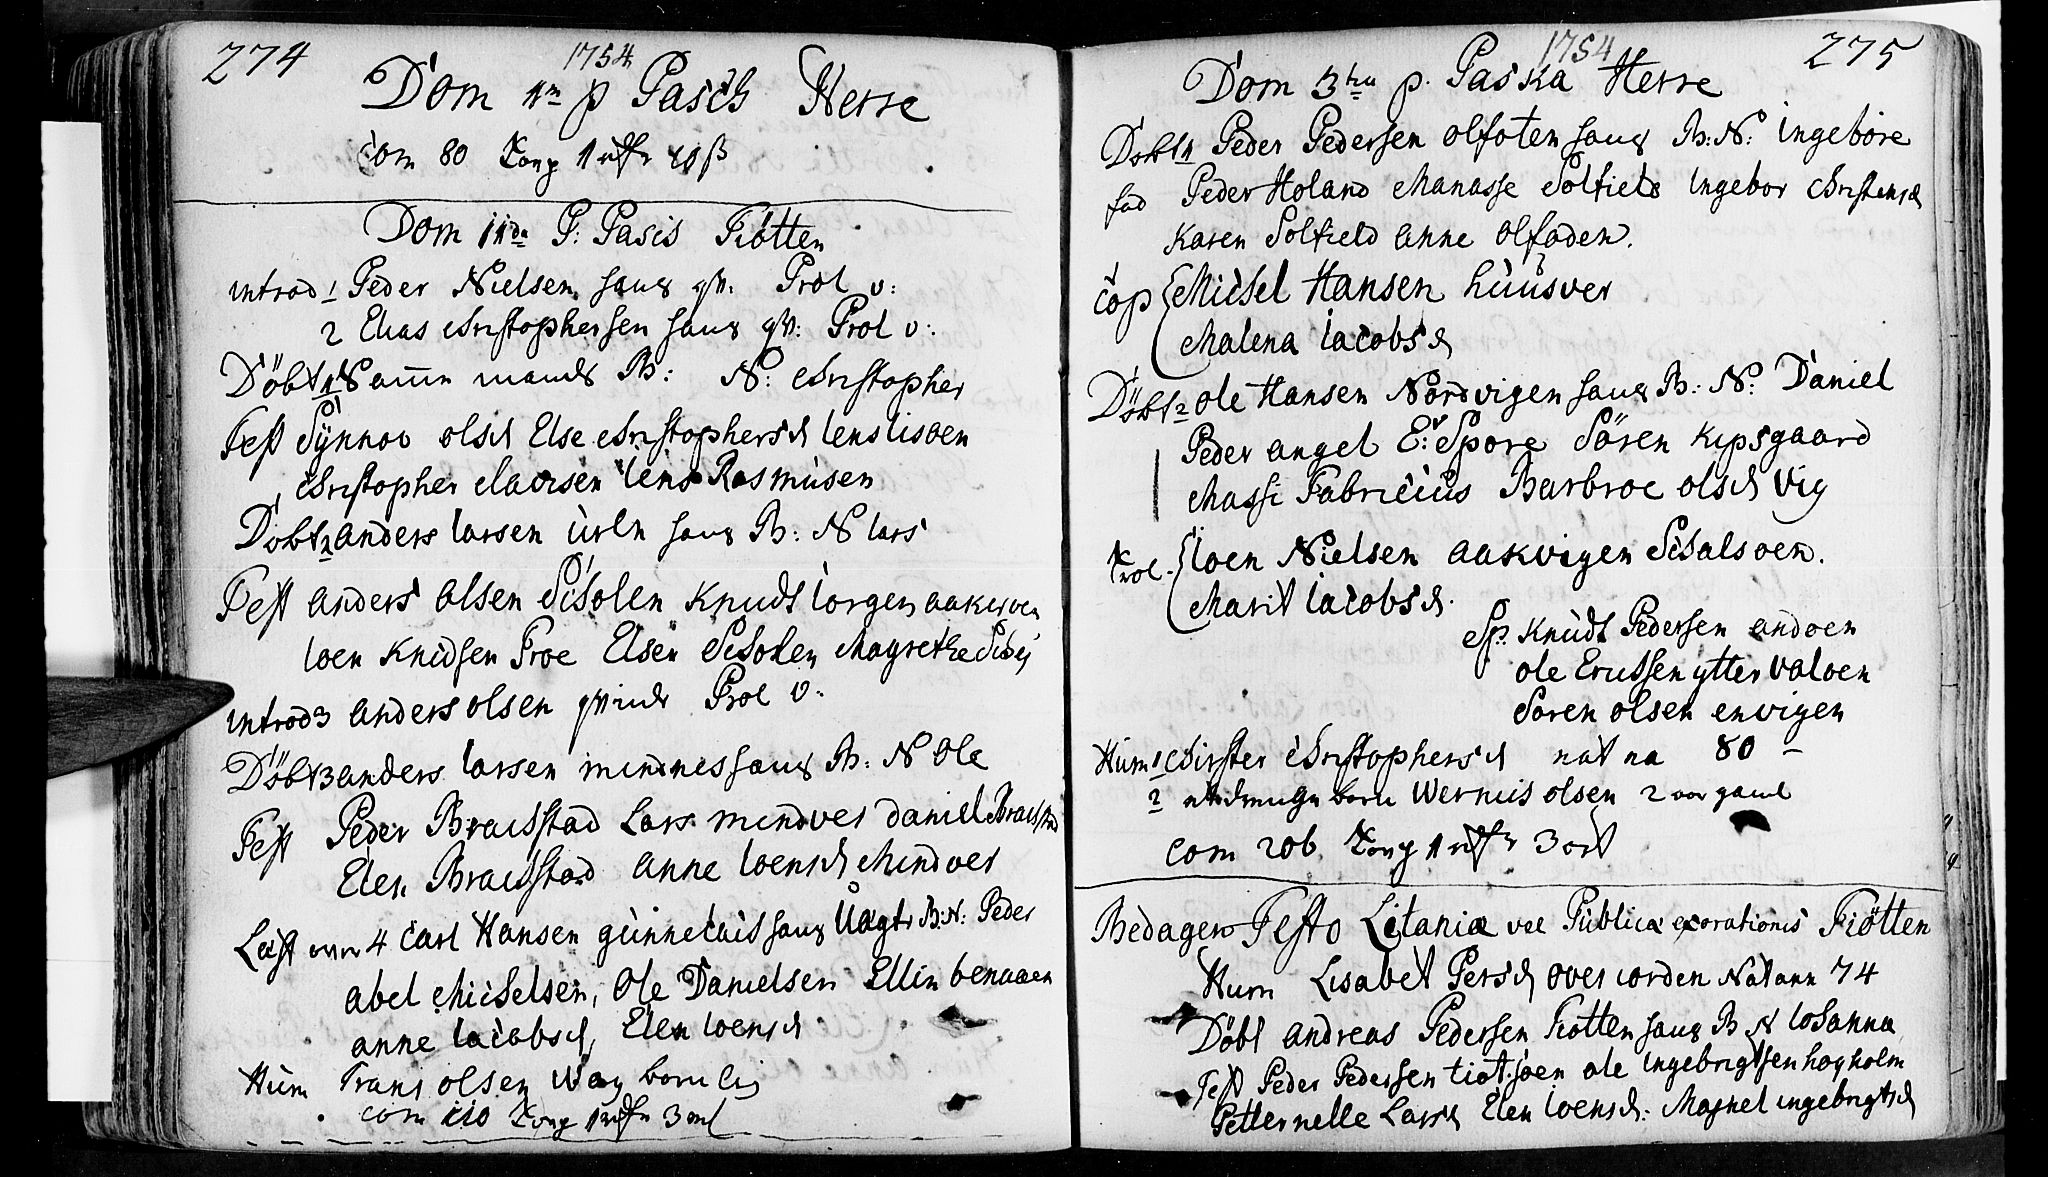 274
1754
Dom 1m p Pasch Herre
Com 80
Dom 11da P: Pasch Tiötten
introd 1 Peder Nielsen hans qv: Prol v:
2 Elias christophersen hans qv: Prol v:
Döbt 1 Samme mands B: N: christopher
Test Synnov olsd Else christophersd Iens
christopher Iens Rasmusen
Döbt 2 anders larsen hans B: N lars
Test anders olsen Knudt aakerven
Ioen Knudsen Elsen Magrethe
introd 3 anders olsen qvinde Prol v:
Döbt 3 anders larsen mindnes hans B: N Ole
Test Peder Braschstad Lars mindver daniel
Elen Braschstad anne Ioensd Mindver
Læst over 4 Carl Hansen hans B:N: Peder
abel Michelsen, Ole Danielsen Ellin
anne Iacobsd, Elen Ioensd
Hum Frans olsen barnlig
com 110 3 ort
1754
275
Dom 3tia p. Paska Herre
Döbt 1 Peder Pedersen olfoten hans B: N: ingebore
fad Peder Holand Manasse Solfield Ingebor christensd
Karen Solfield anne olfoden.
Cop Michel Hansen huusver
Malena Iacobsd
Döbt 2 ole Hansen Nordvigen hans B: N: Daniel
Peder angel E: Spore Sören Kipsgaard
Massi Fabricius Barbroe olsd Vig
Trol. Ioen Nielsen aakvigen
Marit Iacobsd.
Sp. Knudt Pedersen andoen
ole Ericssen ytter valoen
Sören olsen envigen
Hum 1 Kirster christophersd nat na 80
2 barn Wernis olsen 2 aar gaml
Com 206 3 ort
Bedagen Festo Litaniæ vel Publicæ exorationis Tiötten
Hum Lisabet Persd over iorden Nat ann 74
Döbt andreas Pedersen Tiötten hans B N Iohanna
Test Peder Pedersen ole Ingebrigtsen hogholm
Petternelle Larsd Elen Ioensd: Magnel ingebrigtsd